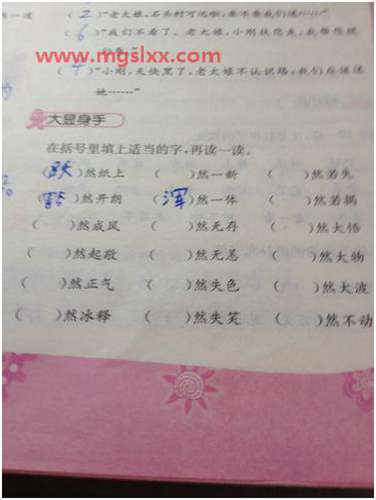 (2)“老大娘,石头村可远啦,要不要我们送……”
(6)“我们不看了。老大娘,小刚扶您走,我帮您提
www.mgslxx.com
(4)“小刚,天快黑了,老大娘不认识路,我们应该送
她……”
大显身手
在括号里填上适当的字,再读一读。
(跃)然纸上 ( )然一新 ( )然若失
(豁)然开朗 (浑)然一体 ( )然若揭
( )然成风 ( )然无存 ( )然大悟
( )然起敬 ( )然无恙 ( )然大物
( )然正气 ( )然失色 ( )然大波
( )然冰释 ( )然失笑 ( )然不动